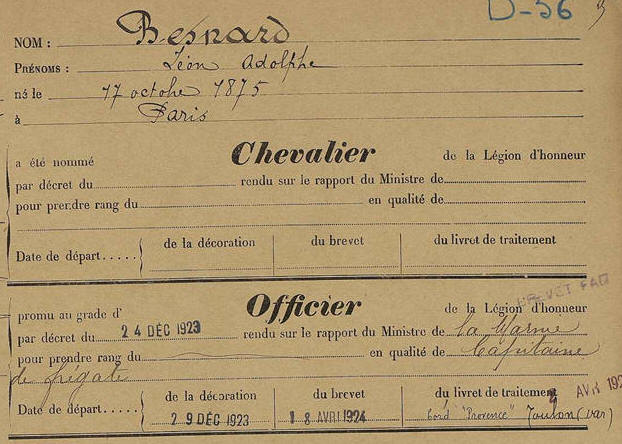 D-56
NOM : Besnard
PRÉNOMS : Léon Adolphe
né le 17 octobre 1875
à Paris
a été nommé Chevalier de la Légion d'honneur
par décret du rendu sur le rapport du Ministre de
pour prendre rang du en qualité de
Date de départ..... de la décoration du brevet du livret de traitement
BREVET FAIT
promu au grade d' Officier de la Légion d'honneur
par décret du 24 DÉC 1923 rendu sur le rapport du Ministre de la Marine
pour prendre rang du en qualité de Capitaine
de frégate
Date de départ..... de la décoration du brevet du livret de traitement AVR 192
29 DÉC 1923 18 AVRI 1924 bord "Provence" Toulon (var)